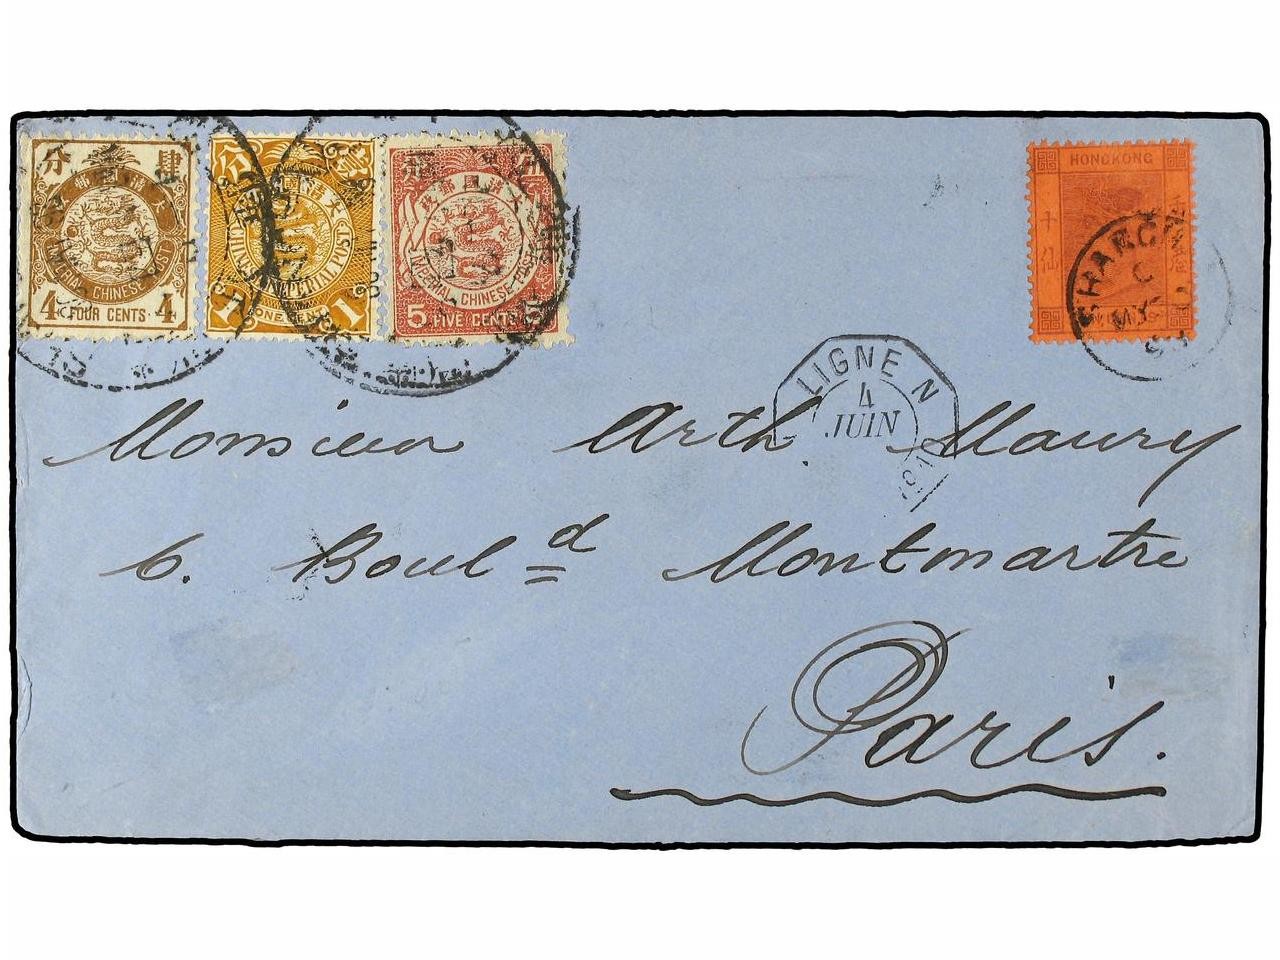 分 肆
IMPERIAL CHINESE POST
4 FOUR CENTS 4
分 壹
大清國郵政
IMPERIAL CHINESE POST
1 ONE CENT 1
分 伍
大清國郵政
IMPERIAL CHINESE POST
5 FIVE CENTS 5
HONGKONG
SHANGHAI
C
MY
LIGNE N
4
JUIN
Monsieur Arth. Maury
6. Boul.d Montmartre
Paris.